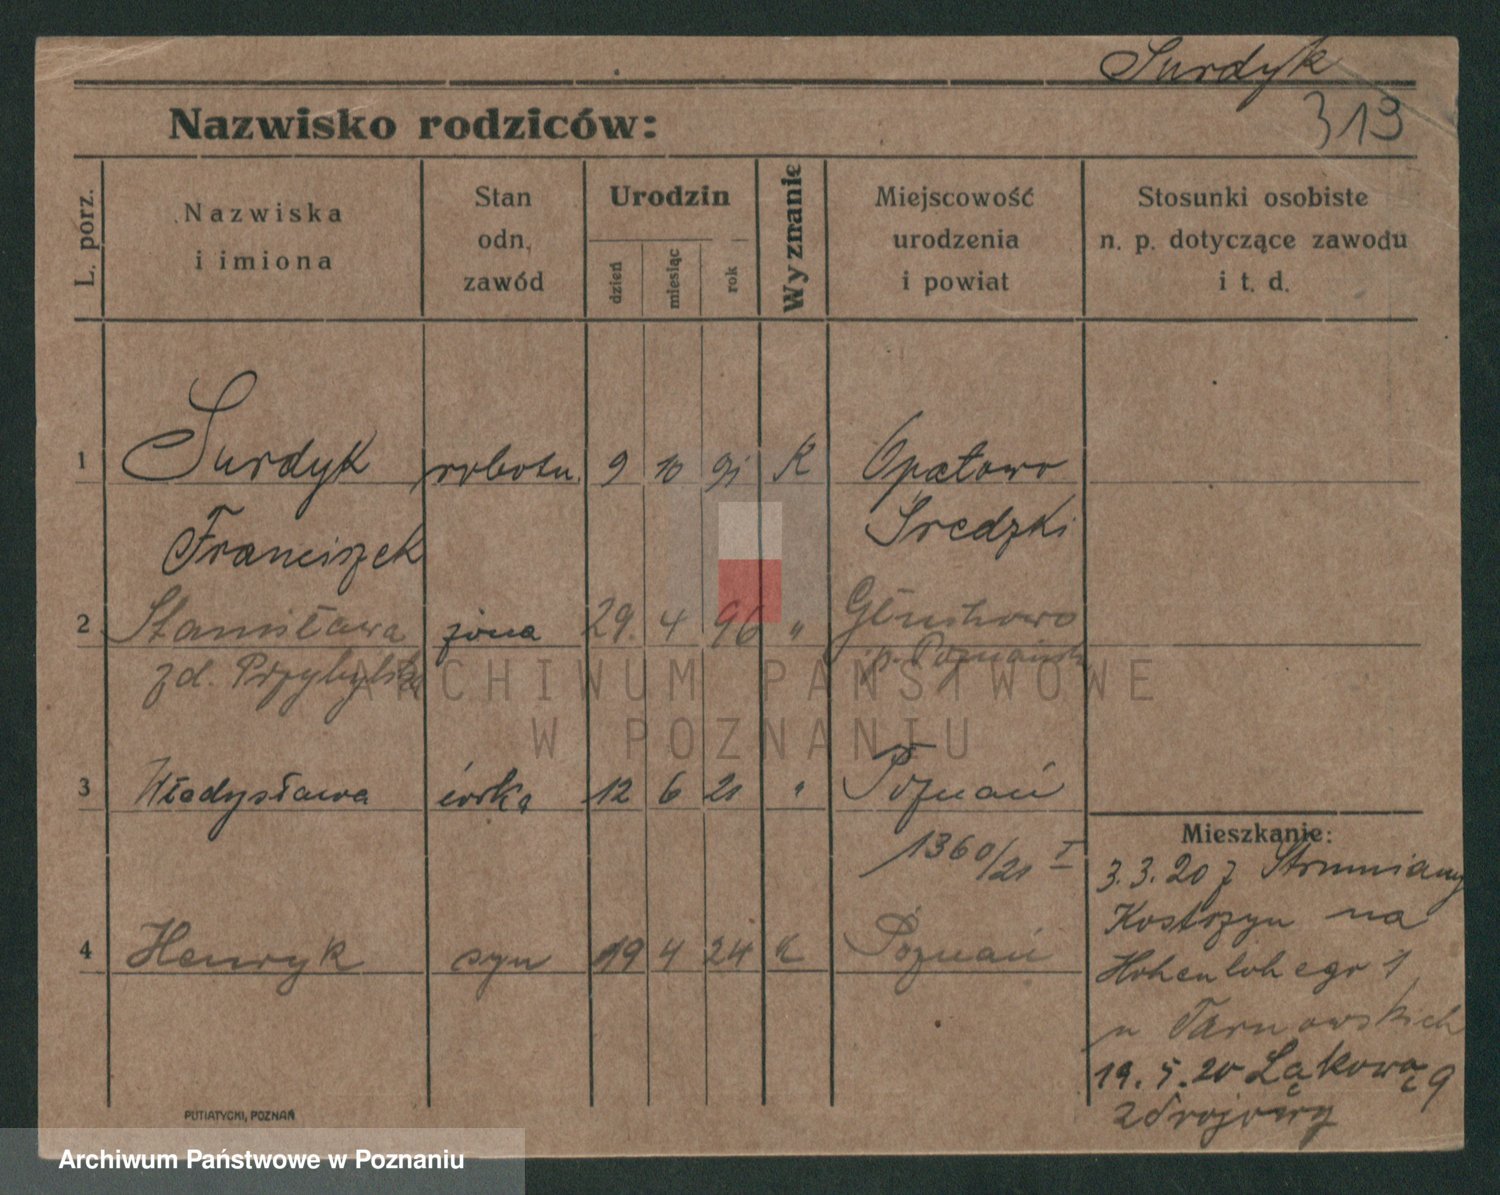 Surdyk
319
Nazwisko rodziców:
L. porz.
Nazwiska
i imiona
Stan
odn.
zawód
Urodzin
dzień
miesiąc
rok
Wyznanie
Miejscowość
urodzenia
i powiat
Stosunki osobiste
n. p. dotyczące zawodu
i t. d.
1 Surdyk robotn. 9 10 91 K Opatowo
Franciszek Sredzki
2 Stanisława żona 29. 4 96 " Głuchowo
zd. Przybylska p. Poznański
ARCHIWUM PAŃSTWOWE
W POZNANIU
3 Władysława córka 12 6 21 " Poznań
1360/21 I
4 Henryk syn 19 4 24 K Poznań
Mieszkanie:
3.3.20 z Strumiany
Kostrzyn na
Hohenlohego 1
u Tarnowskich
19.5.20 Łąkowa 9
Zdrojowy
PUTIATYCKI, POZNAŃ
Archiwum Państwowe w Poznaniu